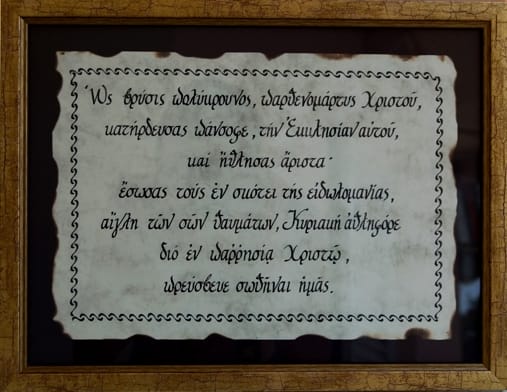 Ὡς βρύσις πολύκρουνος, παρθενομάρτυς Χριστοῦ,
κατήρδευσας πάνσοφε, τήν Ἐκκλησίαν αὐτοῦ,
καί ἤθλησας ἄριστα·
ἔσωσας τούς ἐν σκότει τῆς εἰδωλομανίας,
αἴγλῃ τῶν σῶν θαυμάτων, Κυριακή ἀθληφόρε
διό ἐν παῤῥησίᾳ Χριστῷ,
πρεύσβευε σωθῆναι ἡμᾶς.